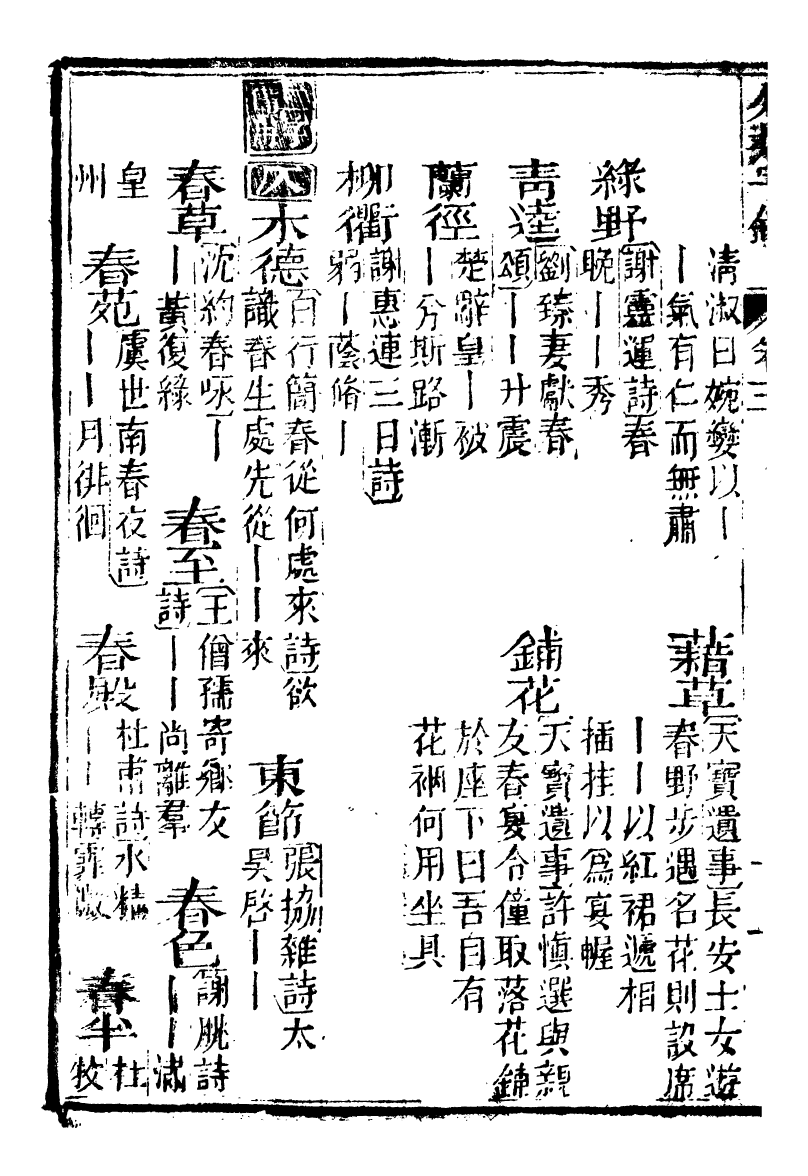 分類字錦 卷三
淸淑曰婉孌以丨
丨氣有仁而無肅
藉草
天寶遺事長安士女遊
春野步遇名花則設席
丨丨以紅裙遞相
插挂以爲宴幄
綠野
謝靈運詩春
晚丨丨秀
靑逵
劉臻妻獻春
頌丨丨升震
鋪花
天寶遺事許愼選與親
友春宴令僮取落花鋪
於座下曰吾自有
花裀何用坐具
蘭徑
楚辭皇丨被
丨兮斯路漸
柳衢
謝惠連三日詩
弱丨蔭脩丨
木德
百行簡春從何處來詩欲
識春生處先從丨丨來
東節
張協雜詩太
昊啓丨丨
春草
沈約春咏丨
丨黃復綠
春至
王僧孺寄鄉友
詩丨丨尚離羣
春色
謝朓詩
丨丨滿
皇
州
春苑
虞世南春夜詩
丨丨月徘徊
春殿
杜甫詩水精
丨丨轉霏微
春半
杜
牧